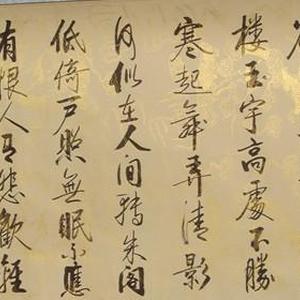 楼玉宇高處不勝
寒起舞弄清影
何似在人間轉朱閣
低倚戶照無眠不應
有恨人有悲歡離